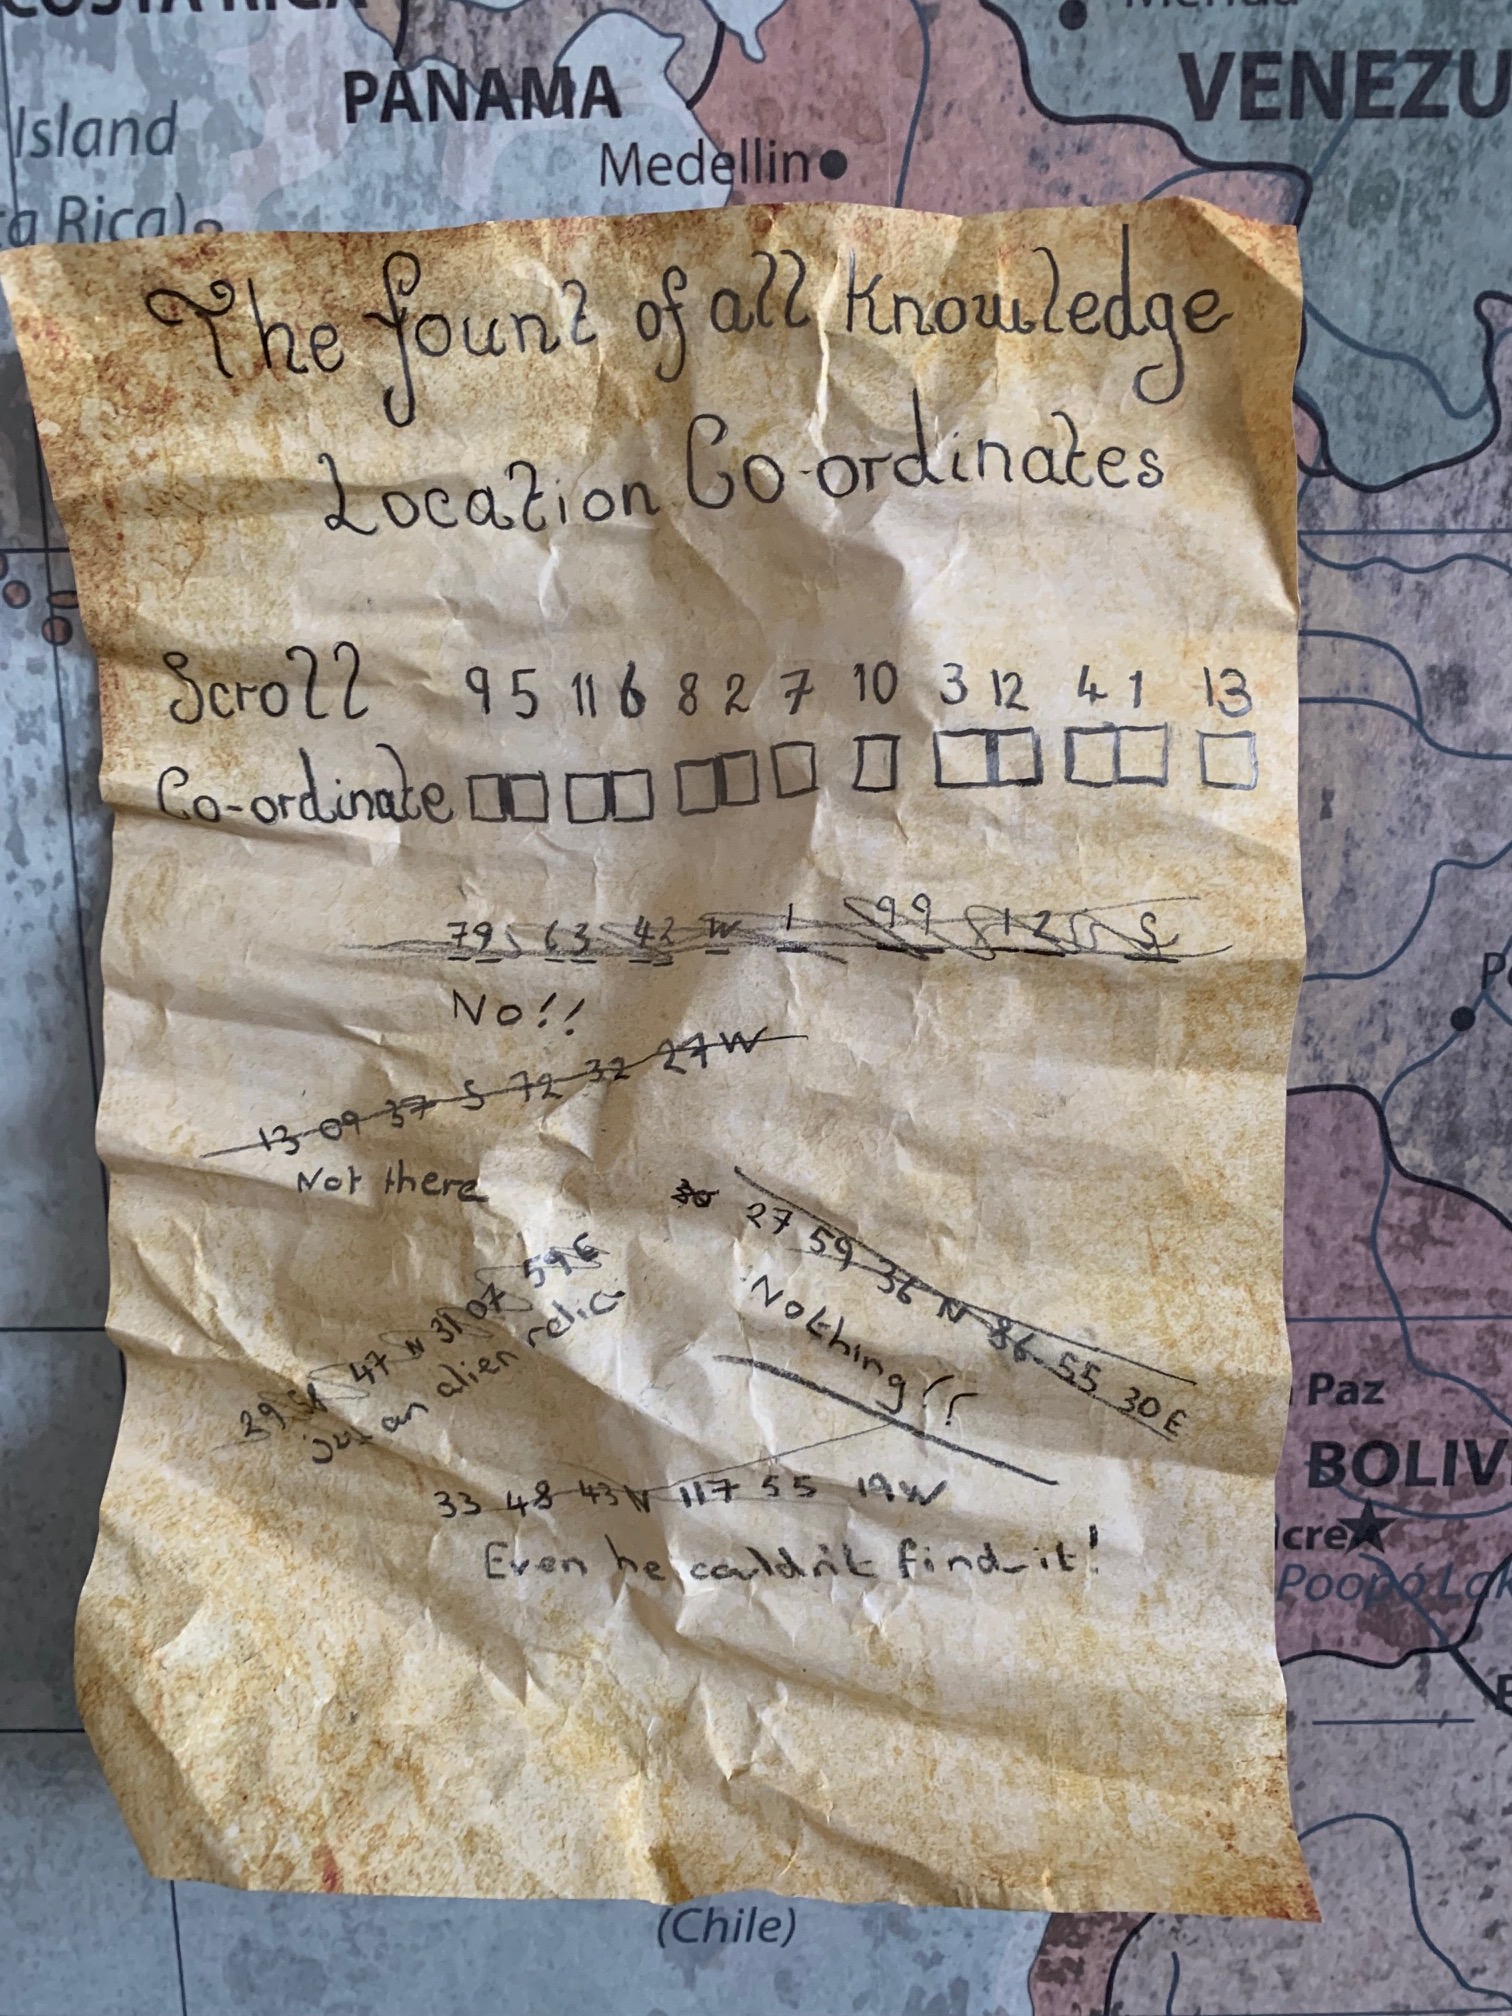 COSTA RICA
PANAMA
VENEZU
Island
Medellin
The fount of all knowledge
Location Co-ordinates
Scroll 9 5 11 6 8 2 7 10 3 12 4 1 13
Co-ordinate
79 63 42 W 1 99 12 S
No!!
13 09 37 S 72 32 27 W
Not there
27 59 36 N 86 55 30 E
Nothing!!
29 58 47 N 31 07 59 E
just an alien relic
33 48 43 N 117 55 19 W
Even he couldn't find it!
Paz
BOLIV
cre
Poopó Lak
(Chile)